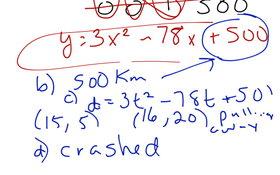 0 0 1 500
y = 3x² - 78x + 500
b) 500 Km
c) d = 3t² - 78t + 50
(15, 5) (16, 20) pull
away
d) crashed